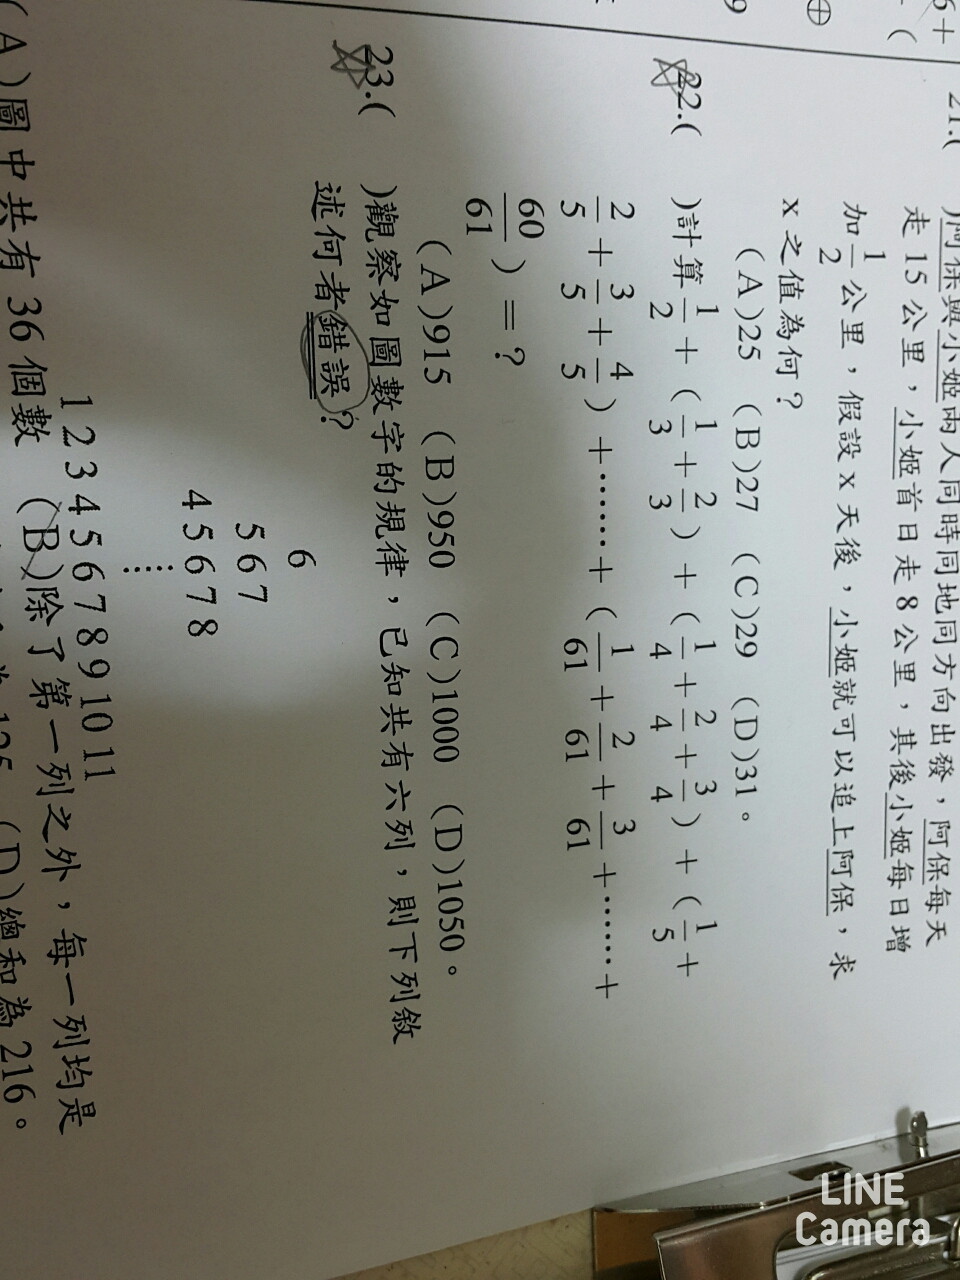 6+
(
⊕
9
21.(　)阿保與小姬兩人同時同地同方向出發，阿保每天
走 15 公里，小姬首日走 8 公里，其後小姬每日增
加 1/2 公里，假設 x 天後，小姬就可以追上阿保，求
x 之值為何？
(A)25 (B)27 (C)29 (D)31。
22.(　)計算 1/2 + (1/3 + 2/3) + (1/4 + 2/4 + 3/4) + (1/5 +
2/5 + 3/5 + 4/5) + …… + (1/61 + 2/61 + 3/61 + …… +
60/61) = ？
(A)915 (B)950 (C)1000 (D)1050。
23.(　)觀察如圖數字的規律，已知共有六列，則下列敘
述何者錯誤？
6
5 6 7
4 5 6 7 8
⋮
1 2 3 4 5 6 7 8 9 10 11
(A)圖中共有 36 個數 (B)除了第一列之外，每一列均是
(D)總和為 216。
LINE
Camera